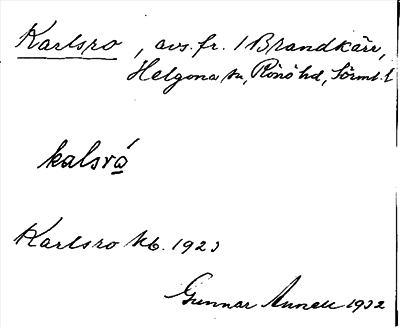 Karlsro, avs. fr. 1 Brandkärr,
Helgona sn, Rönö hd, Sörml. l
kalsrá
Karlsro kb. 1923
Gunnar 1932